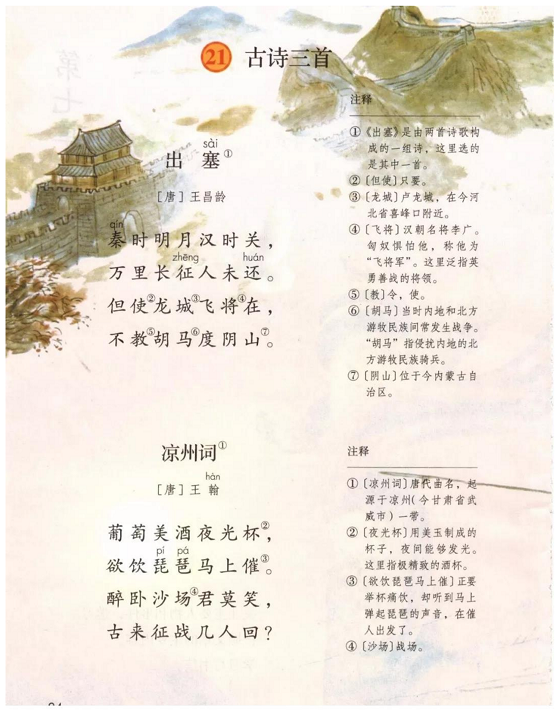 21 古诗三首
sài
出 塞①
[唐] 王昌龄
qín
秦时明月汉时关，
zhēng huán
万里长征人未还。
但使②龙城③飞将④在，
不教⑤胡马⑥度阴山⑦。
注释
①《出塞》是由两首诗歌构
成的一组诗，这里选的
是其中一首。
②〔但使〕只要。
③〔龙城〕卢龙城，在今河
北省喜峰口附近。
④〔飞将〕汉朝名将李广。
匈奴惧怕他，称他为
“飞将军”。这里泛指英
勇善战的将领。
⑤〔教〕令，使。
⑥〔胡马〕当时内地和北方
游牧民族间常发生战争。
“胡马”指侵扰内地的北
方游牧民族骑兵。
⑦〔阴山〕位于今内蒙古自
治区。
凉州词①
hàn
[唐] 王 翰
葡萄美酒夜光杯②，
pí pá
欲饮琵琶马上催③。
醉卧沙场④君莫笑，
古来征战几人回？
注释
①〔凉州词〕唐代曲名，起
源于凉州（今甘肃省武
威市）一带。
②〔夜光杯〕用美玉制成的
杯子，夜间能够发光。
这里指极精致的酒杯。
③〔欲饮琵琶马上催〕正要
举杯痛饮，却听到马上
弹起琵琶的声音，在催
人出发了。
④〔沙场〕战场。